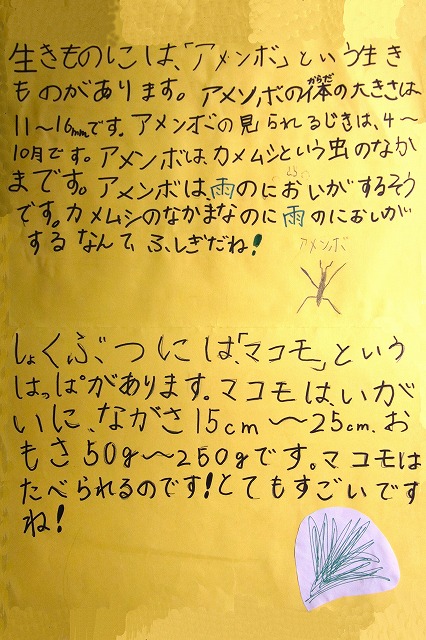 生きものには、「アメンボ」という生き
ものがあります。アメンボの体の大きさは
からだ
11〜16mmです。アメンボの見られるじきは、4〜
10月です。アメンボは、カメムシという虫のなか
まです。アメンボは、雨のにおいがするそう
です。カメムシのなかまなのに雨のにおいが
するなんて、ふしぎだね!
アメンボ
しょくぶつには、「マコモ」という
はっぱがあります。マコモは、いがい
いに、ながさ15cm〜25cm、お
もさ50g〜250gです。マコモは
たべられるのです!とてもすごいです
ね!